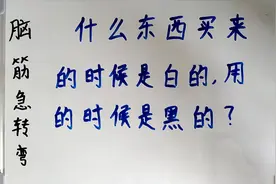 脑筋急转弯
什么东西买来
的时候是白的,用
的时候是黑的?